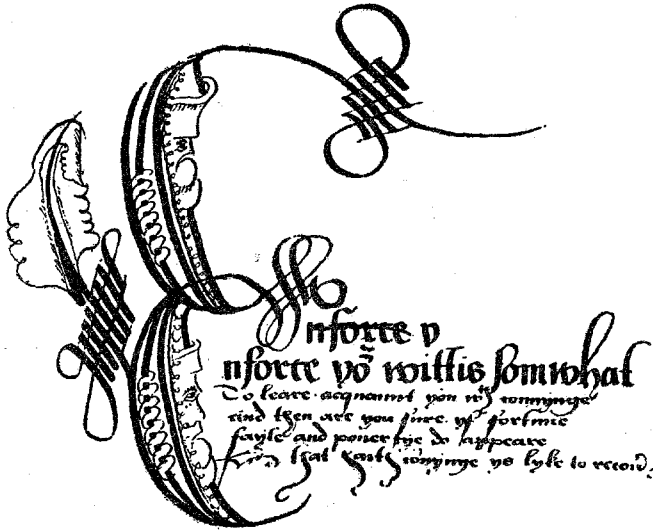 Enforce y
nforce yor wittis somwhat
To leare acquaint you wth connynge
and then are you sure yf fortune
fayle and pouertye do appeare
that hath connynge ys lyke to recour